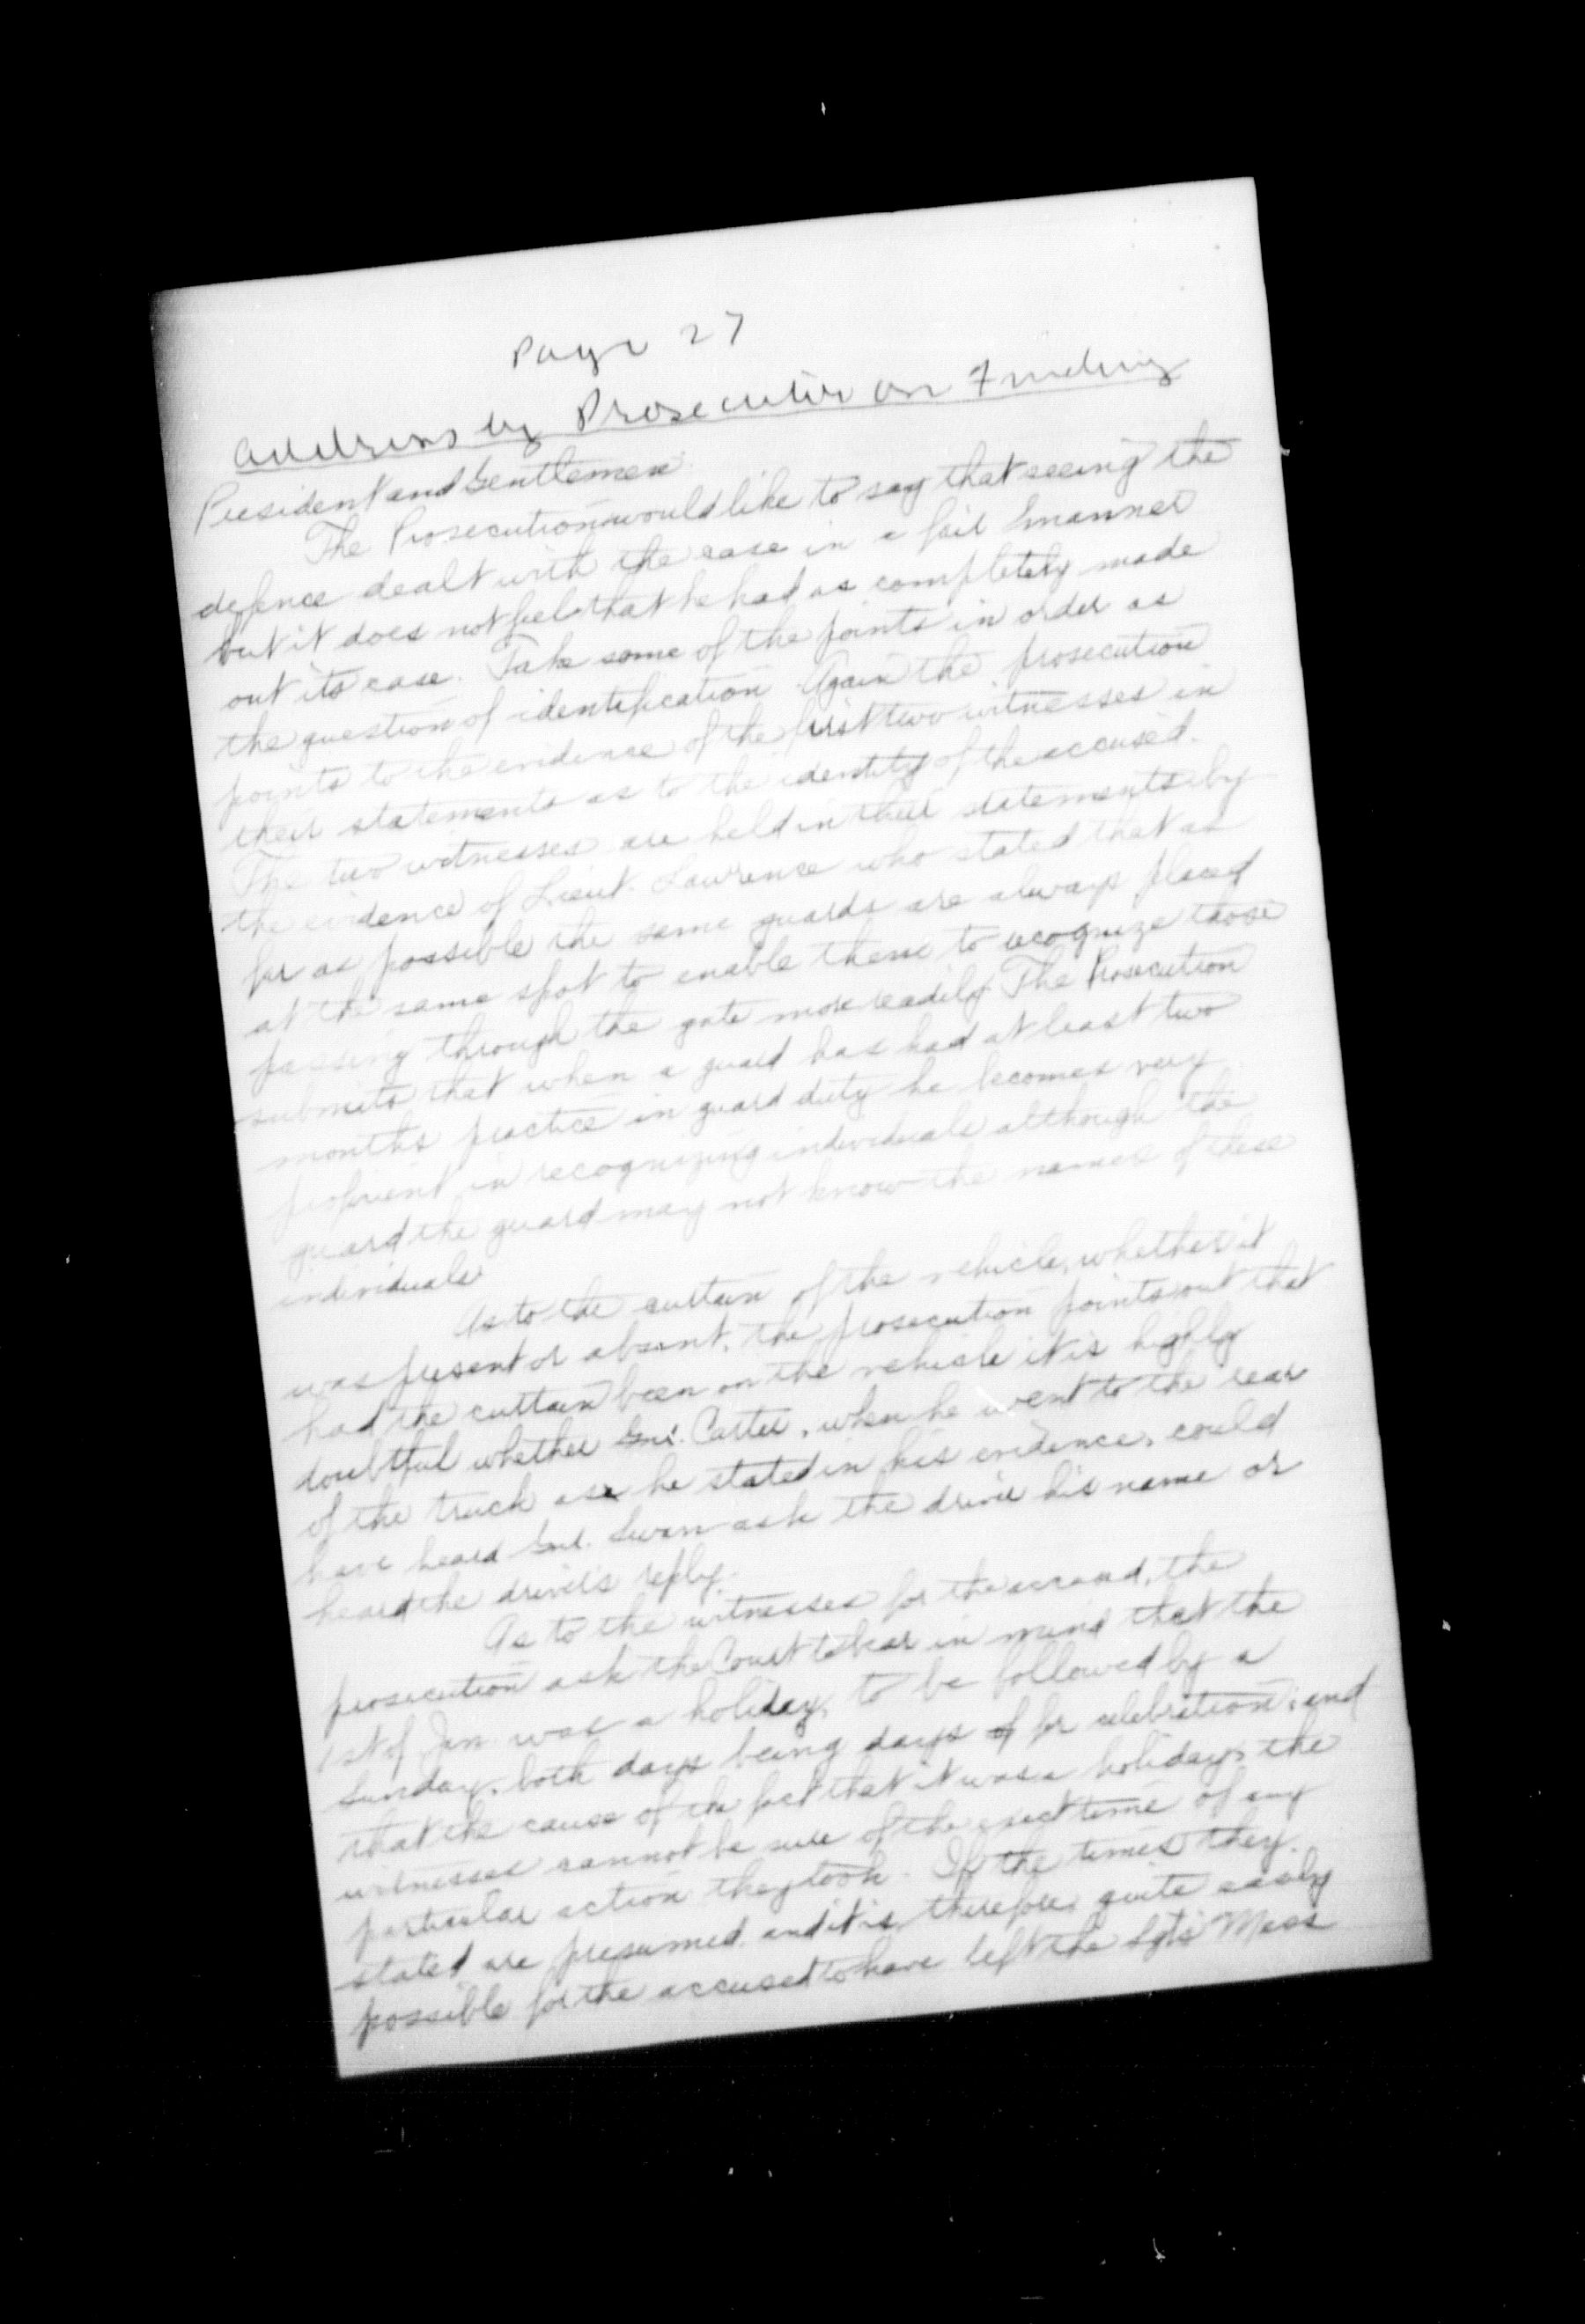 Page 27
Address by Prosecutor on Finding
President and Gentlemen
The Prosecution would like to say that seeing the
defence dealt with the case in a fair manner
but it does not feel that he had as completely made
out its case. Take some of the points in order as
the question of identification. Again the prosecution
points to the evidence of the first two witnesses in
their statements as to the identity of the accused.
The two witnesses are held in their statements by
the evidence of Lieut. Lawrence who stated that as
far as possible the same guards are always placed
at the same spot to enable them to recognize those
passing through the gate more readily. The Prosecution
submits that when a guard has had at least two
months practice in guard duty he becomes very
proficient in recognizing individuals although the
guard the guard may not know the names of these
individuals
As to the curtain of the vehicle, whether it
was present or absent, the prosecution points out that
had the curtain been on the vehicle it is highly
doubtful whether Gnr. Carter, when he went to the rear
of the truck as he stated in his evidence, could
have heard Gnr. Swan ask the driver his name or
heard the driver's reply.
As to the witnesses for the accused, the
prosecution ask the Court to bear in mind that the
1st of Jan was a holiday, to be followed by a
Sunday, both days being days of for celebration; and
that the cause of the fact that it was a holiday, the
witnesses cannot be sure of the exact time of any
particular action they took. If the times they
stated are presumed, and it is therefore, quite easily
possible for the accused to have left the Sgts Mess